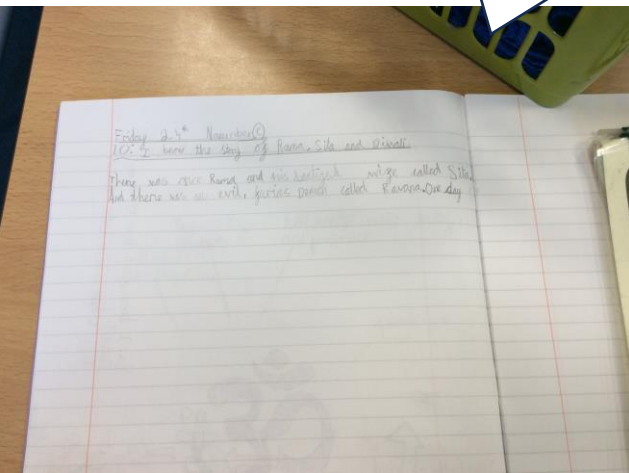 Friday 24th November
LO: I know the stoy of Rama, Sita and Diwali.
There was once Rama and his wige called Sita
And there was an evil, called Ravana. One day